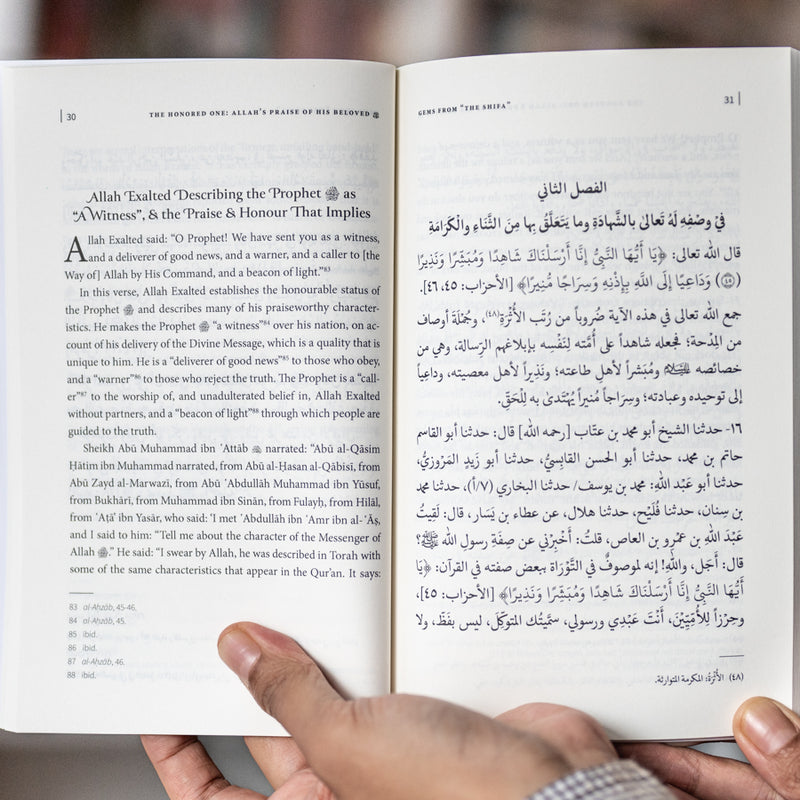 30
THE HONORED ONE: ALLAH'S PRAISE OF HIS BELOVED ﷺ
Allah Exalted Describing the Prophet ﷺ as
"A Witness", & the Praise & Honour That Implies
Allah Exalted said: "O Prophet! We have sent you as a witness,
and a deliverer of good news, and a warner, and a caller to [the
Way of] Allah by His Command, and a beacon of light."83
In this verse, Allah Exalted establishes the honourable status of
the Prophet ﷺ and describes many of his praiseworthy character-
istics. He makes the Prophet ﷺ "a witness"84 over his nation, on ac-
count of his delivery of the Divine Message, which is a quality that is
unique to him. He is a "deliverer of good news"85 to those who obey,
and a "warner"86 to those who reject the truth. The Prophet is a "call-
er"87 to the worship of, and unadulterated belief in, Allah Exalted
without partners, and a "beacon of light"88 through which people are
guided to the truth.
Sheikh Abū Muhammad ibn ʿAttāb narrated: "Abū al-Qāsim
Ḥātim ibn Muhammad narrated, from Abū al-Ḥasan al-Qābisī, from
Abū Zayd al-Marwazī, from Abū ʿAbdullāh Muhammad ibn Yūsuf,
from Bukhārī, from Muhammad ibn Sinān, from Fulayḥ, from Hilāl,
from ʿAṭāʾ ibn Yasār, who said: 'I met ʿAbdullāh ibn ʿAmr ibn al-ʿĀṣ,
and I said to him: "Tell me about the character of the Messenger of
Allah ﷺ." He said: "I swear by Allah, he was described in Torah with
some of the same characteristics that appear in the Qur'an. It says:
83 al-Aḥzāb, 45-46.
84 al-Aḥzāb, 45.
85 ibid.
86 ibid.
87 al-Aḥzāb, 46.
88 ibid.
GEMS FROM "THE SHIFA"
31
الفصل الثاني
في وصْفِهِ لَهُ تَعالى بالشَّهادَةِ وما يَتَعَلَّقُ بِها مِنَ الثَّناءِ والْكَرَامَةِ
قال الله تعالى: ﴿يَا أَيُّهَا النَّبِيُّ إِنَّا أَرْسَلْنَاكَ شَاهِدًا وَمُبَشِّرًا وَنَذِيرًا
(٤٥) وَدَاعِيًا إِلَى اللَّهِ بِإِذْنِهِ وَسِرَاجًا مُّنِيرًا﴾ [الأحزاب: ٤٥، ٤٦].
جمع الله تعالى في هذه الآية ضُروباً من رُتَب الأُثْرَةِ(٤٨)، وجُمْلَةَ أوصاف
من المِدْحة؛ فجعله شاهداً على أُمَّته لِنَفْسِه بإبلاغهم الرسالة، وهي من
خصائصه ﷺ ومُبَشراً لأهل طاعته؛ ونَذِيراً لأهل معصيته، وداعياً
إلى توحيده وعبادته؛ وسِرَاجاً مُنيراً يُهْتَدى به لِلْحَقِّ.
١٦- حدثنا الشيخ أبو محمد بن عتّاب [رحمه الله] قال: حدثنا أبو القاسم
حاتم بن محمد، حدثنا أبو الحسن القابِسيُّ، حدثنا أبو زَيدِ المَرْوَزِيُّ،
حدثنا أبو عَبْد اللهِ: محمد بن يوسف/ حدثنا البخاري (٧/أ)، حدثنا محمد
بن سِنان، حدثنا فُلَيْح، حدثنا هلال، عن عطاء بن يَسَار، قال: لَقِيتُ
عَبْدَ اللهِ بن عمْرو بن العاص، قلتُ: أَخْبِرْني عن صِفَةِ رسولِ الله ﷺ؟
قال: أَجَل، واللهِ! إنه لموصوفٌ في التَّوْرَاة بِبعض صفته في القرآن: ﴿يَا
أَيُّهَا النَّبِيُّ إِنَّا أَرْسَلْنَاكَ شَاهِدًا وَمُبَشِّرًا وَنَذِيرًا﴾ [الأحزاب: ٤٥]،
وحِرْزاً لِلأُمِّيِّينَ، أَنْتَ عَبْدِي ورسولي، سمَّيتُك المتوكِّلَ، ليس بفَظّ، ولا
(٤٨) الأُثْرَةُ: المكرمة المتوارثة.